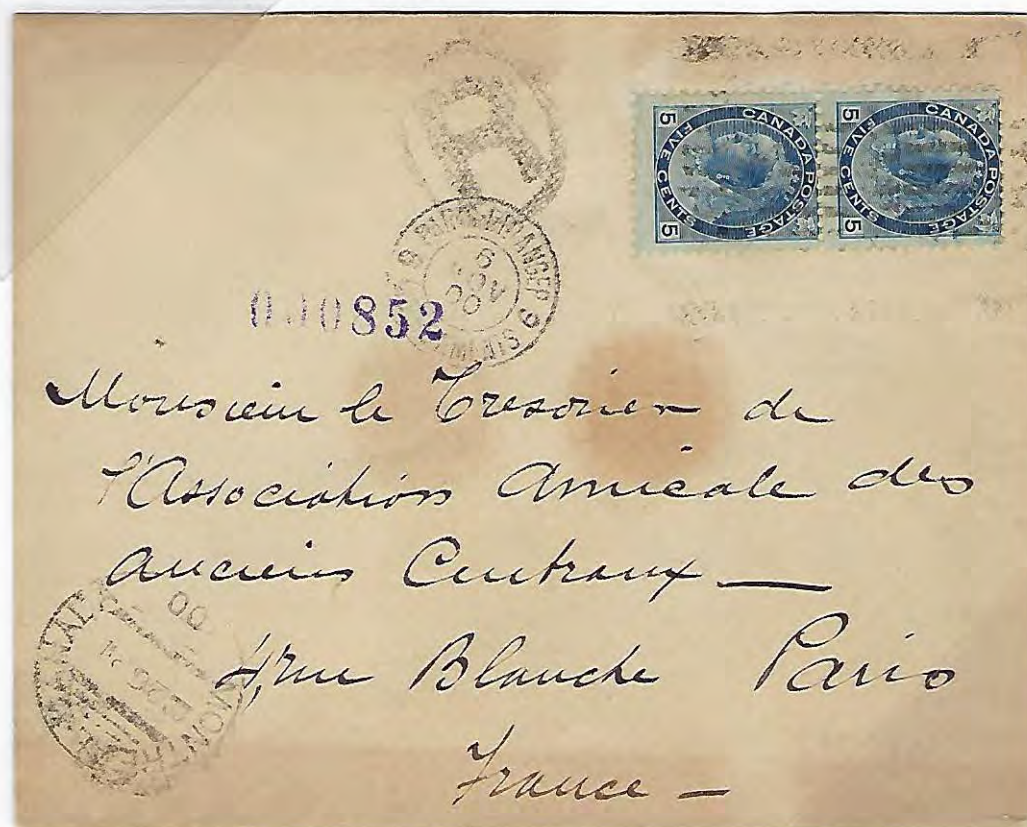 CANADA POSTAGE
5 FIVE CENTS 5
CANADA POSTAGE
5 FIVE CENTS 5
R
PARIS-ETRANGER
9
00
000852
Monsieur le Tresorier de
l'Association Amicale des
anciens Centraux —
4, rue Blanche Paris
France —
MONTREAL
00